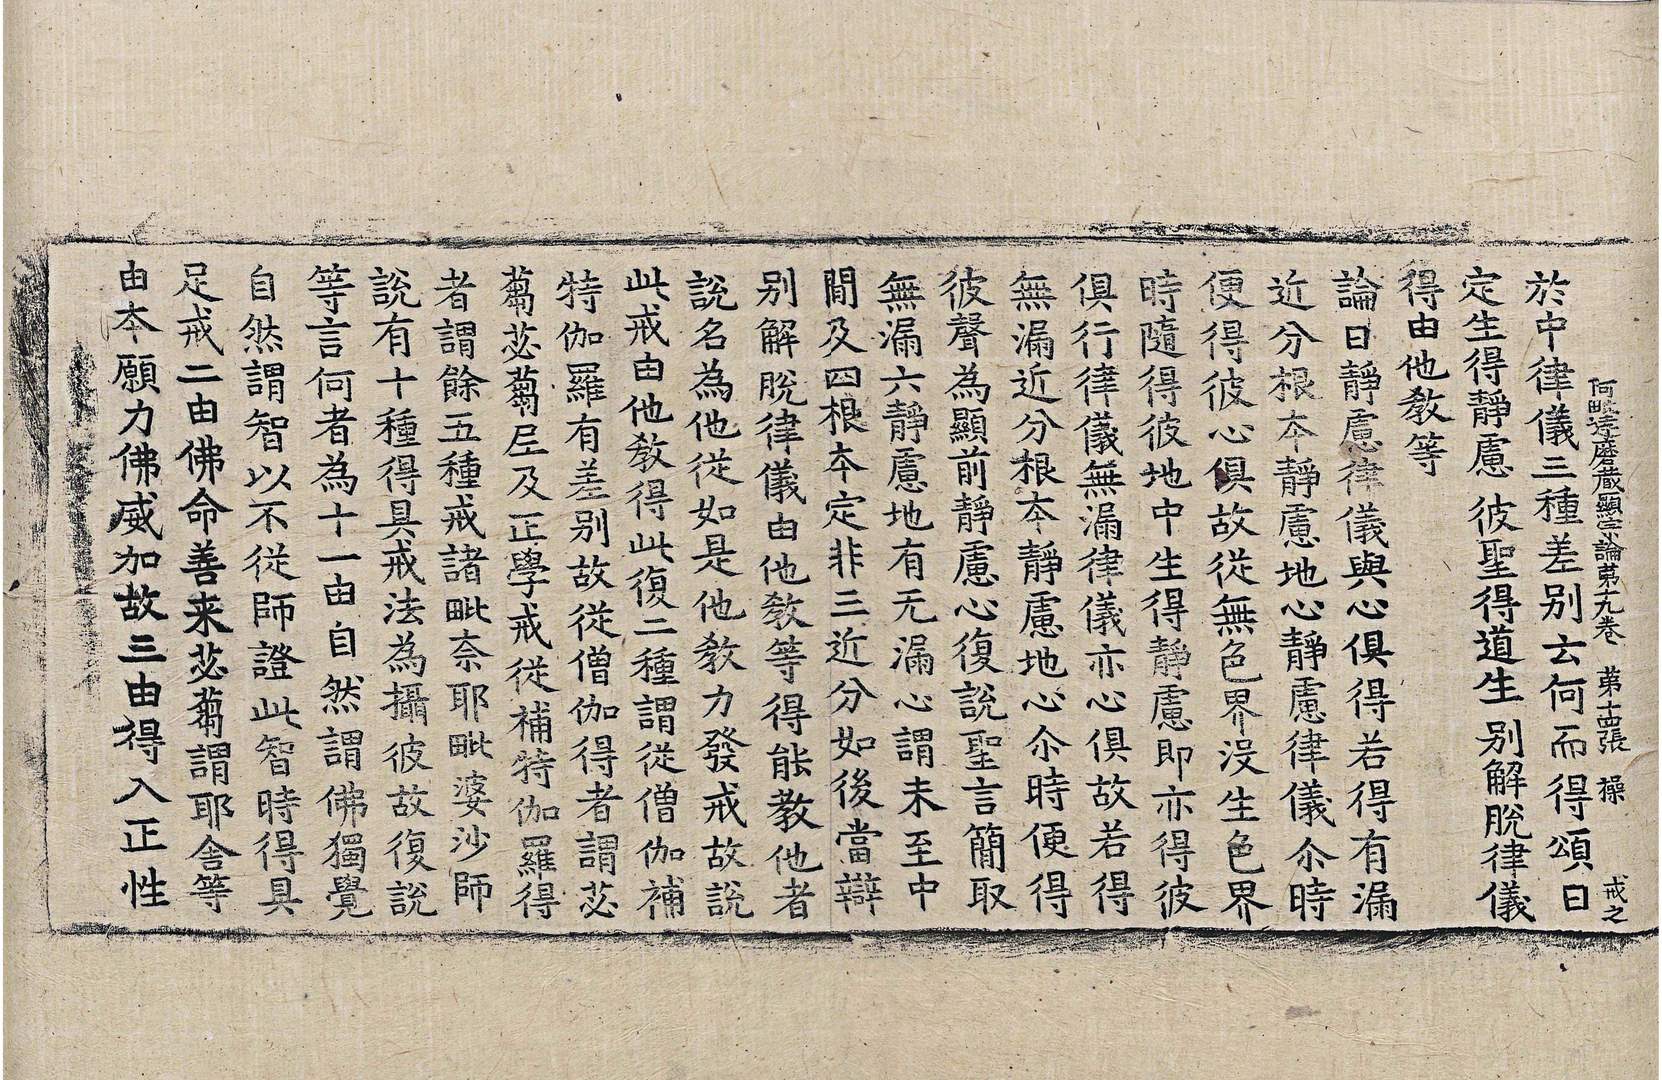 阿毗達磨藏顯宗論第十九卷 第十四張 操 戒之
於中律儀三種差別云何而得頌曰
定生得靜慮 彼聖得道生 別解脫律儀
得由他教等
論曰靜慮律儀與心俱得若得有漏
近分根本靜慮地心靜慮律儀尒時
便得彼心俱故從無色界沒生色界
時隨得彼地中生得靜慮即亦得彼
俱行律儀無漏律儀亦心俱故若得
無漏近分根本靜慮地心尒時便得
彼聲為顯前靜慮心復說聖言簡取
無漏六靜慮地有无漏心謂未至中
間及四根本定非三近分如後當辯
別解脫律儀由他教等得能教他者
說名為他從如是他教力發戒故說
此戒由他教得此復二種謂從僧伽補
特伽羅有差別故從僧伽得者謂苾
蒭苾蒭尼及正學戒從補特伽羅得
者謂餘五種戒諸毗奈耶毗婆沙師
說有十種得具戒法為攝彼故復說
等言何者為十一由自然謂佛獨覺
自然謂智以不從師證此智時得具
足戒二由佛命善来苾蒭謂耶舍等
由本願力佛威加故三由得入正性